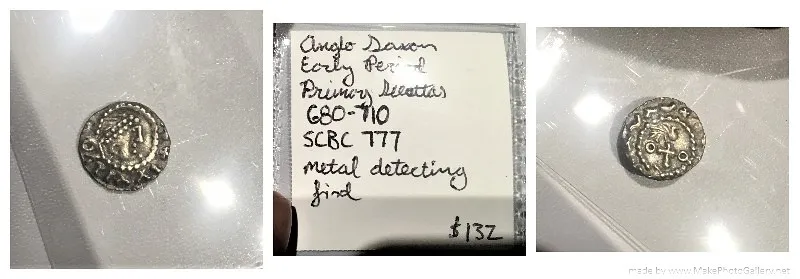 Anglo Saxon
Early Period
Primary Sceattas
680-710
SCBC 777
metal detecting
find
$132
made by www.MakePhotoGallery.net